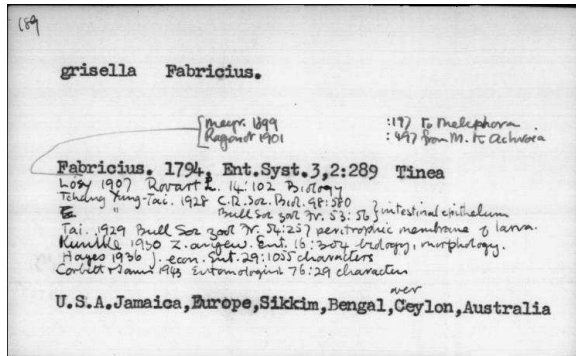 189
grisella Fabricius.
Meyr. 1899 :197 to Meliphora
Ragonot 1901 :497 from M. to Achroia
Fabricius. 1794, Ent.Syst.3,2:289 Tinea
Lósy 1907 Rovart L. 14:102 Biology
Tchang Yung-Tai. 1928 C.R. Soc. Biol. 98:580
" Bull Soc zool Fr. 53:56 } intestinal epithelium
Tai. 1929 Bull Soc zool Fr. 54:257 peritrophic membrane of larva.
1930 Z. angew. Ent. 16:304 biology, morphology.
Hayes 1936 J. econ. Ent. 29:1055 characters
Corbett & 1943 Entomologist 76:29 characters
over
U.S.A.Jamaica,Europe,Sikkim,Bengal,Ceylon,Australia